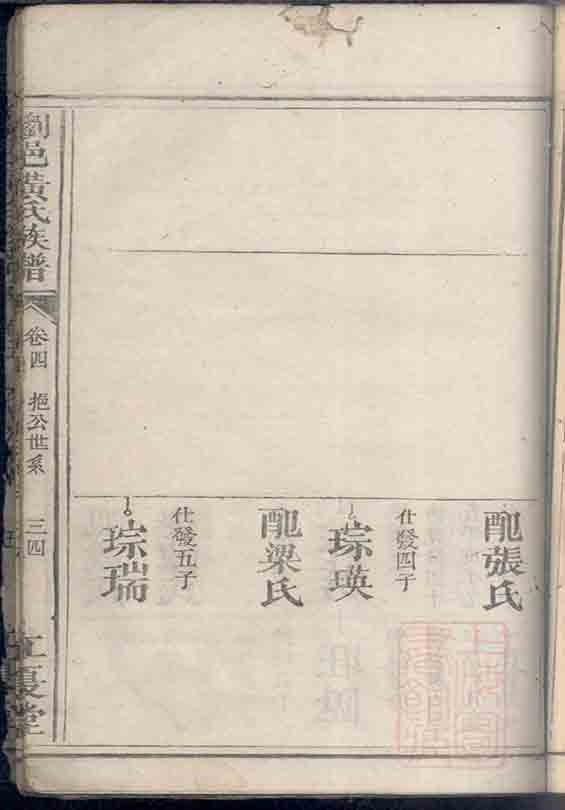 配張氏
仕發四子
琮瑛
配梁氏
仕發五子
琮瑞
瀏邑黃氏族譜
卷四
挹公世系
三四
江夏堂